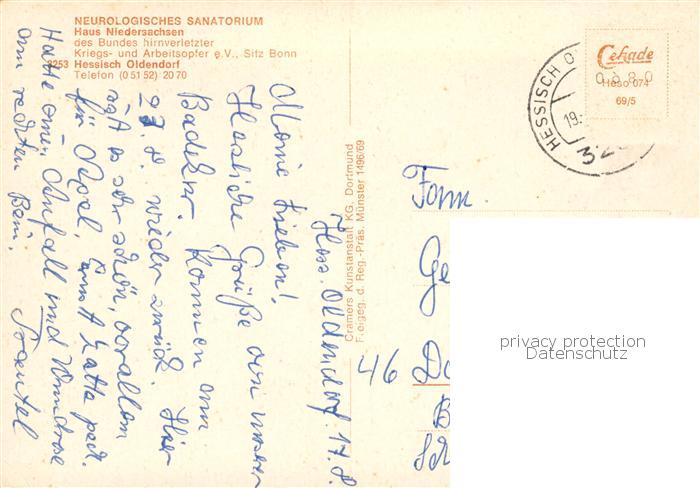 NEUROLOGISCHES SANATORIUM
Haus Niedersachsen
des Bundes hirnverletzter
Kriegs- und Arbeitsopfer e.V., Sitz Bonn
3253 Hessisch Oldendorf
Telefon (0 51 52) 20 70
Cramers Kunstanstalt KG, Dortmund
Freigeg. d. Reg.-Präs. Münster 1496/69
Cekade
Heso 074
69/5
HESSISCH O
19.
Hess. Oldendorf 17.8.
Meine Lieben!
Herzliche Grüße von unserer
Badekur. Kommen am
27.8. wieder zurück. Hier
ist es sehr schön, vorallem
für Ernst hatte
Hatte einen Anfall und Wundrose
am rechten Bein.
Fam.
Ge
46 Do
B
Sch
privacy protection
Datenschutz